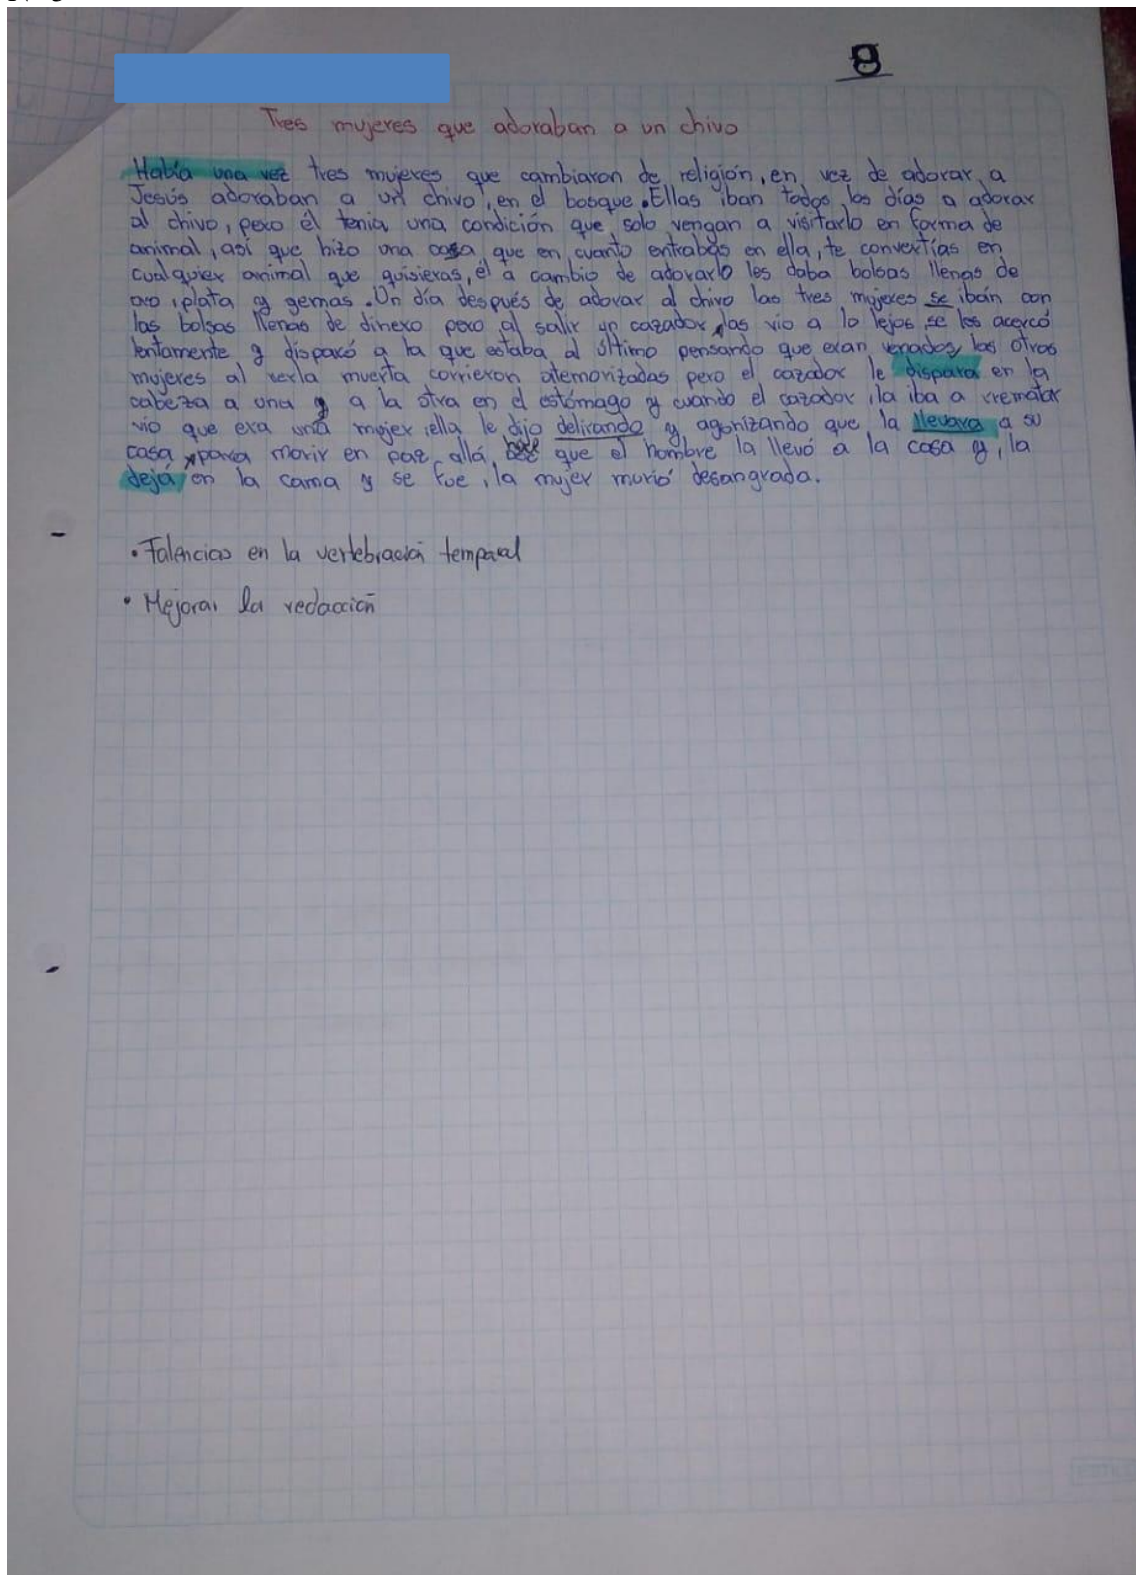 8
Tres mujeres que adoraban a un chivo
Había una vez tres mujeres que cambiaron de religión, en vez de adorar a
Jesús adoraban a un chivo, en el bosque. Ellas iban todos los días a adorar
al chivo, pero él tenia una condición que solo vengan a visitarlo en forma de
animal, así que hizo una casa que en cuanto entrabas en ella, te convertías en
cualquier animal que quisieras, él a cambio de adorarlo les daba bolsas llenas de
oro, plata y gemas. Un día después de adorar al chivo las tres mujeres se iban con
las bolsas llenas de dinero pero al salir un cazador las vio a lo lejos se les acercó
lentamente y disparó a la que estaba al último pensando que eran venados, las otras
mujeres al verla muerta corrieron atemorizadas pero el cazador le dispara en la
cabeza a una y a la otra en el estómago y cuando el cazador, la iba a rematar
vio que era una mujer, ella le dijo delirando y agonizando que la llevara a su
casa para morir en paz allá, que el hombre la llevó a la casa y, la
dejá en la cama y se fue, la mujer murió desangrada.
• Falencias en la vertebración temporal
• Mejorar la redacción